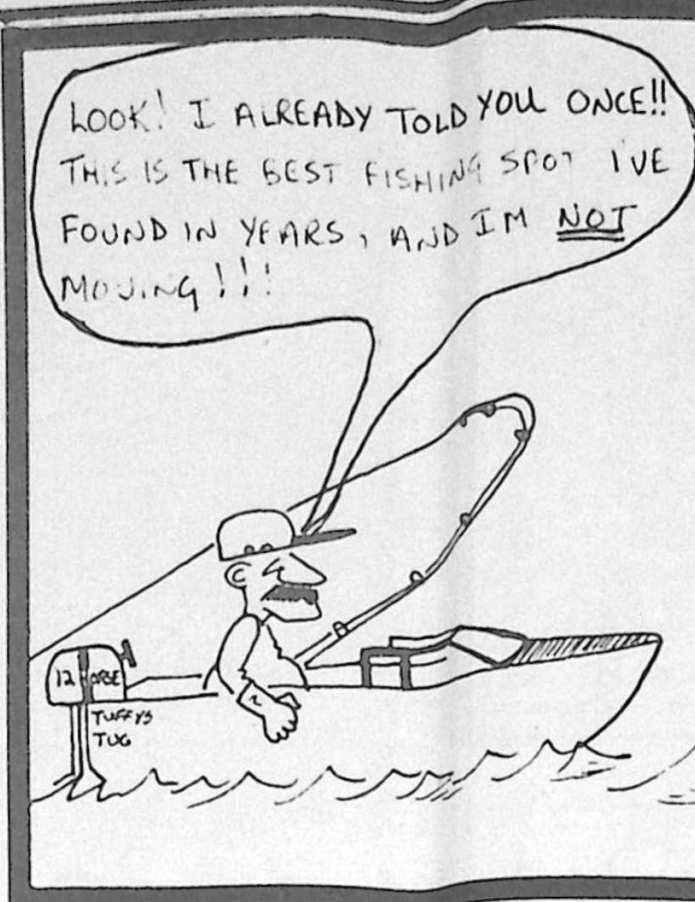 LOOK! I ALREADY TOLD YOU ONCE!!
THIS IS THE BEST FISHING SPOT I'VE
FOUND IN YEARS, AND I'M NOT
MOVING!!!
12 HORSE
TUFFYS
TUG